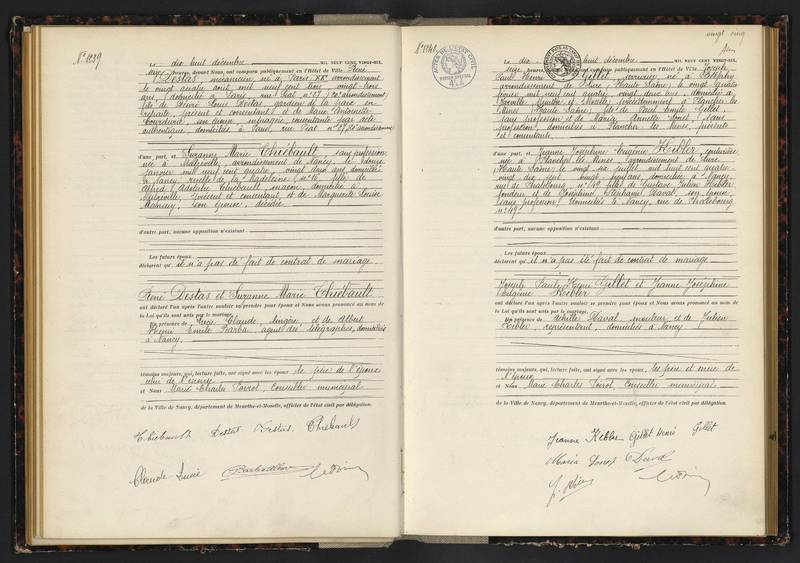 N° 1239
Le dix huit décembre MIL NEUF CENT VINGT-SIX,
heures, devant Nous, ont comparu publiquement en l'Hôtel de Ville René
Destas, mécanicien, né à Paris, XXe arrondissement
le vingt quatre août mil neuf cent trois, vingt trois
ans, domicilié à Paris, rue Piat n° 27 (20e arrondissement)
fils de Louis Destas, gardien de la paix en
retraite, présent et consentant et de Marie Antoinette
son épouse, ménagère, consentante par acte
authentique, domiciliés à Paris, rue Piat n° 27, 20e arrondissement
d'une part, et Suzanne Marie Thiébault, sans profession
née à Malzéville, arrondissement de Nancy, le douze
janvier mil neuf cent quatre, vingt deux ans, domiciliée
à Nancy, ruelle de la Madeleine n° 16, fille de
Alfred Adolphe Thiébault, maçon, domicilié à
Malzéville, présent et consentant, et de Marguerite Louise
son épouse, décédée
d'autre part; aucune opposition n'existant
Les futurs époux
déclarent qu'il n'a pas été fait de contrat de mariage
René Destas et Suzanne Marie Thiébault
ont déclaré l'un après l'autre vouloir se prendre pour époux et Nous avons prononcé au nom de
la Loi qu'ils sont unis par le mariage.
En présence de Lucie Claude, lingère, et de Albert
Henri Emile Barba, agent des télégraphes, domiciliés
à Nancy
témoins majeurs, qui, lecture faite, ont signé avec les époux le père de l'époux
celui de l'épouse
et Nous Marie Charles Poirot, Conseiller municipal
de la Ville de Nancy, département de Meurthe-et-Moselle, officier de l'état civil par délégation.
Thiébault Destas Destas Thiébault
Claude Lucie
N° 1240
vingt cinq
Le dix huit décembre MIL NEUF CENT VINGT-SIX,
heures, devant Nous, ont comparu publiquement en l'Hôtel de Ville Joseph
Paul Henri Gillet, né à
arrondissement de Lure (Haute Saône) le vingt quatre
mil neuf cent quatre, vingt deux ans, domicilié à
Meurthe et Moselle, précédemment à Plancher les
Mines (Haute Saône), fils de Paul Gillet,
sans profession et de Maria sans
profession, domiciliés à Plancher les Mines, présents
et consentants
d'une part, et Jeanne Joséphine Eugénie Kibler, couturière
née à Plancher les Mines (arrondissement de Lure
Haute Saône) le vingt six juillet mil huit cent quatre
vingt dix sept, vingt neuf ans, domiciliée à Nancy,
rue de Phalsbourg, n° 49, fille de Gustave Julien Kibler,
fondeur et de Joséphine Raval, son épouse,
sans profession, domiciliés à Nancy, rue de Phalsbourg
n° 49
d'autre part; aucune opposition n'existant
Les futurs époux
déclarent qu'il n'a pas été fait de contrat de mariage
Joseph Paul Henri Gillet et Jeanne Joséphine
Eugénie Kibler
ont déclaré l'un après l'autre vouloir se prendre pour époux et Nous avons prononcé au nom de
la Loi qu'ils sont unis par le mariage.
En présence de Achille Raval, mouleur, et de Julien
Kibler, représentant, domiciliés à Nancy
témoins majeurs, qui, lecture faite, ont signé avec les époux, les père et mère de
l'époux
et Nous Marie Charles Poirot, Conseiller municipal
de la Ville de Nancy, département de Meurthe-et-Moselle, officier de l'état civil par délégation.
Jeanne Kibler Gillet Henri Gillet
Maria